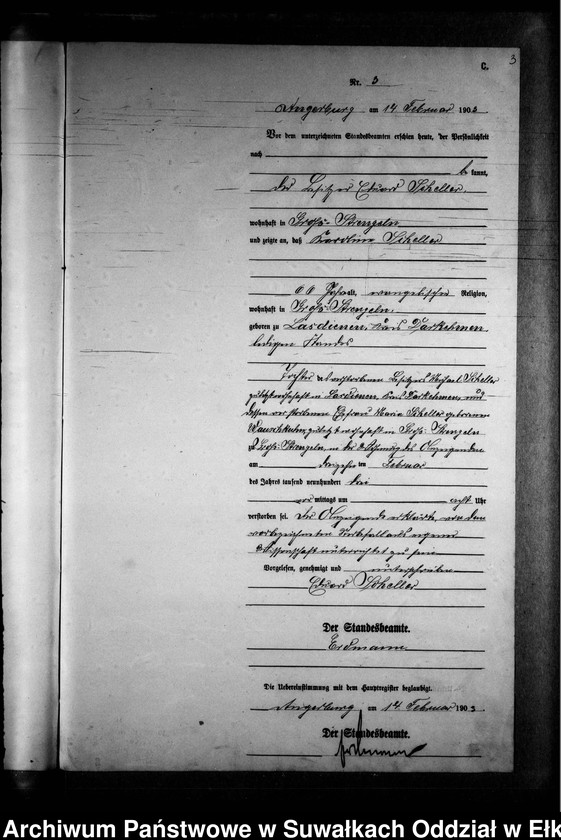 3
C.
Nr. 3
Angerburg am 14 Februar 1903
Vor dem unterzeichneten Standesbeamten erschien heute, der Persönlichkeit
nach
be kannt,
der Besitzer Eduard Scheller
wohnhaft in Groß-Strengeln
und zeigte an, daß Karoline Scheller
Jahre alt, evangelischer Religion,
wohnhaft in Groß-Strengeln,
geboren zu Lasdienen, Kreis Darkehmen,
ledigen Standes
Tochter des verstorbenen Besitzers Michael Scheller
zuletzt wohnhaft in Lasdienen, Kreis Darkehmen, und
dessen verstorbenen Ehefrau Maria Scheller geborenen
zuletzt wohnhaft in Groß-Strengeln
zu Groß-Strengeln, in der Wohnung des Anzeigenden
am dreizehn ten Februar
des Jahres tausend neunhundert drei
vor mittags um acht Uhr
verstorben sei. Der Anzeigende erklärte, von dem
vorbezeichneten Sterbefall aus eigener
Wissenschaft unterrichtet zu sein
Vorgelesen, genehmigt und unterschrieben
Eduard Scheller
Der Standesbeamte.
Erdmann
Die Uebereinstimmung mit dem Hauptregister beglaubigt.
Angerburg, am 14 Februar 1903
Der Standesbeamte.
Erdmann
Archiwum Państwowe w Suwałkach Oddział w Ełk